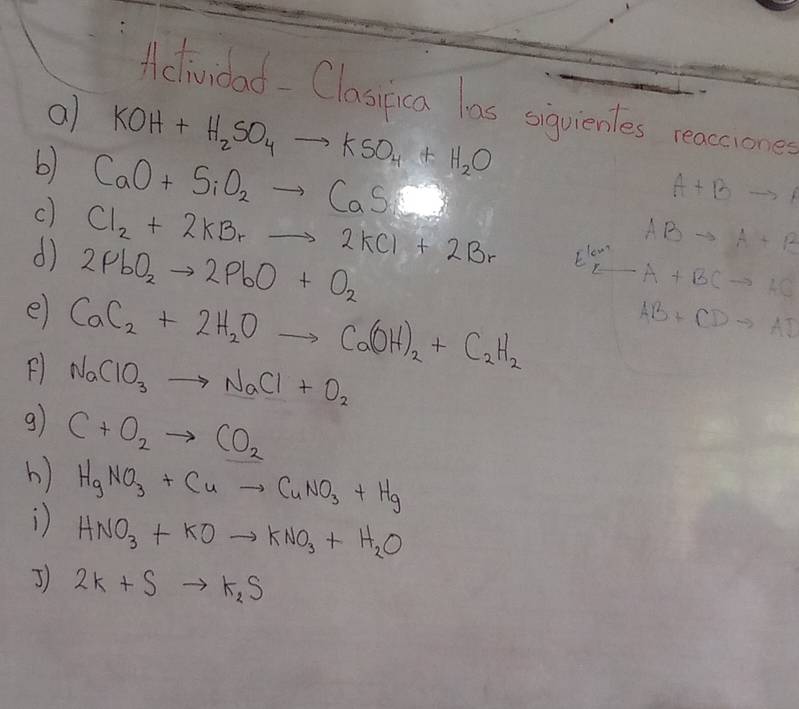 Actividad - Clasifica las siguientes reacciones
a) KOH + H₂SO₄ → KSO₄ + H₂O
b) CaO + SiO₂ → CaS
c) Cl₂ + 2KBr → 2KCl + 2Br
d) 2PbO₂ → 2PbO + O₂
e) CaC₂ + 2H₂O → Ca(OH)₂ + C₂H₂
F) NaClO₃ → NaCl + O₂
g) C + O₂ → CO₂
h) HgNO₃ + Cu → CuNO₃ + Hg
i) HNO₃ + KO → KNO₃ + H₂O
J) 2K + S → K₂S
A + B →
AB → A + B
A + BC → AC
AB + CD → AD